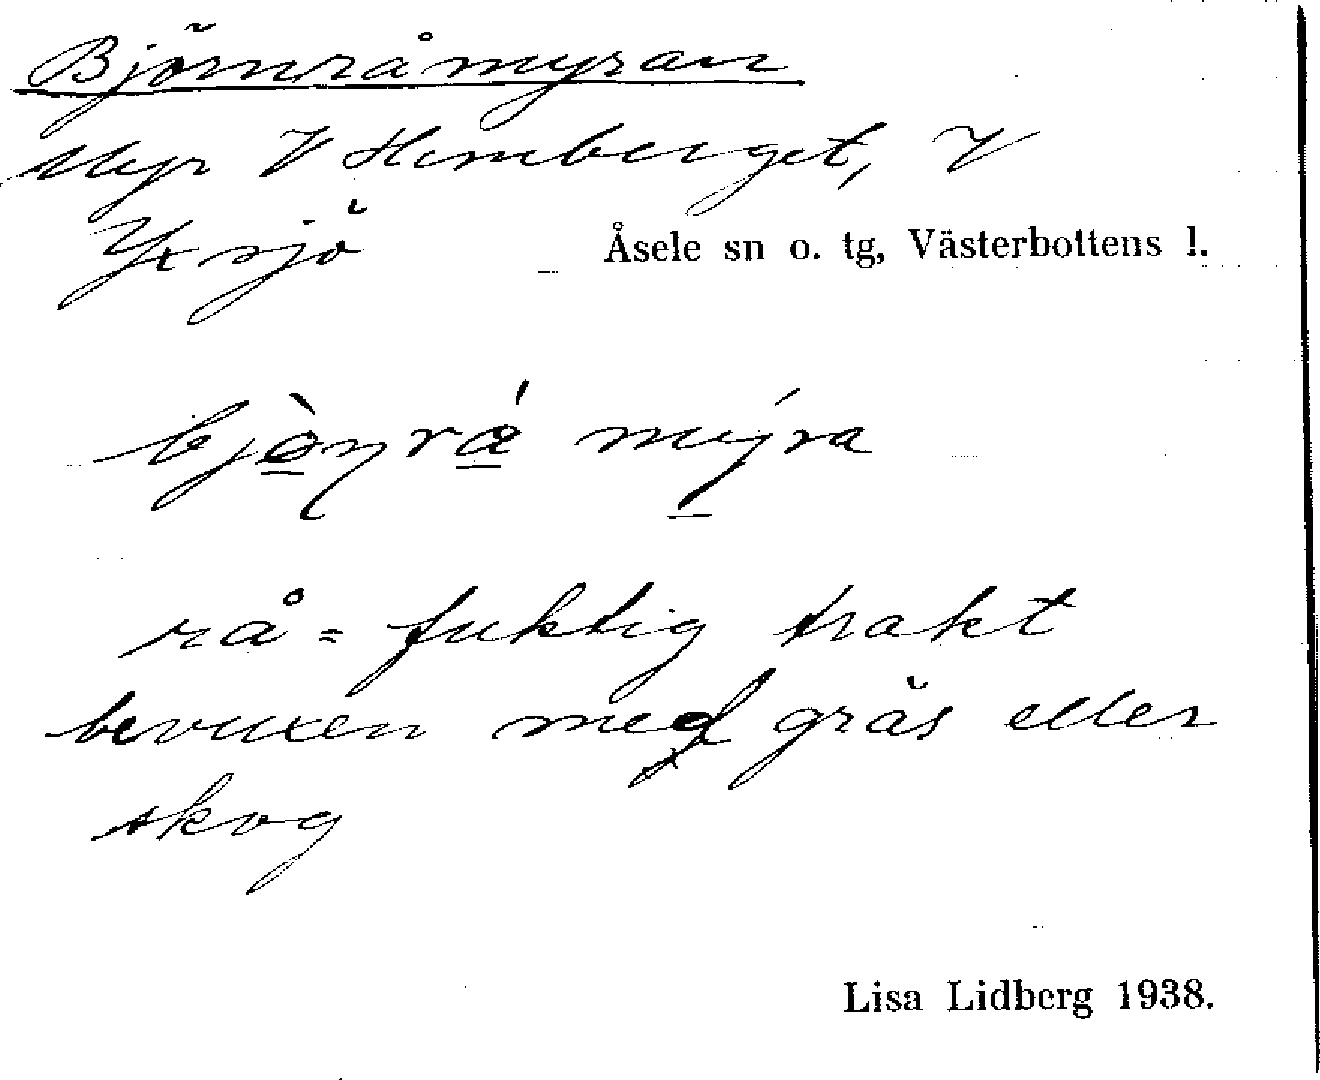 Björnråmyran
Myr V Hemberget, V
Yxsjö
Åsele sn o. tg, Västerbottens l.
bjòṇrǽ mýra
rå = fuktig trakt
bevuxen med gräs eller
skog
Lisa Lidberg 1938.